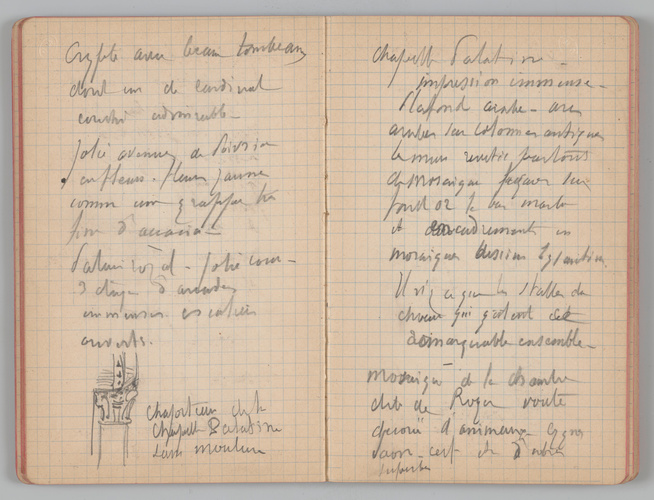 Crypte avec beaux tombeaux
dont un de cardinal
couché admirable -
Jolie avenue de
en fleurs. fleur jaune
comme une grappe très
fine d'acacia -
Palais royal - jolie cour -
3 étages d'arcades
immenses escaliers
ouverts.
chapiteau de la
chapelle Palatine
sans moulure
Chapelle Palatine -
impression immense -
Plafond arabe - arcs
arabes sur colonnes antiques
les murs revêtus partout
de mosaïque figures sur
fond or le bas marbre
et encadrements en
mosaïques dessins byzantins
Il n'y a que les stalles du
chœur qui gâtent cet
remarquable ensemble -
mosaïque de la chambre
dite de Roger voute
décorée d'animaux - tigres
paon - cerf et d'arbres
superbe